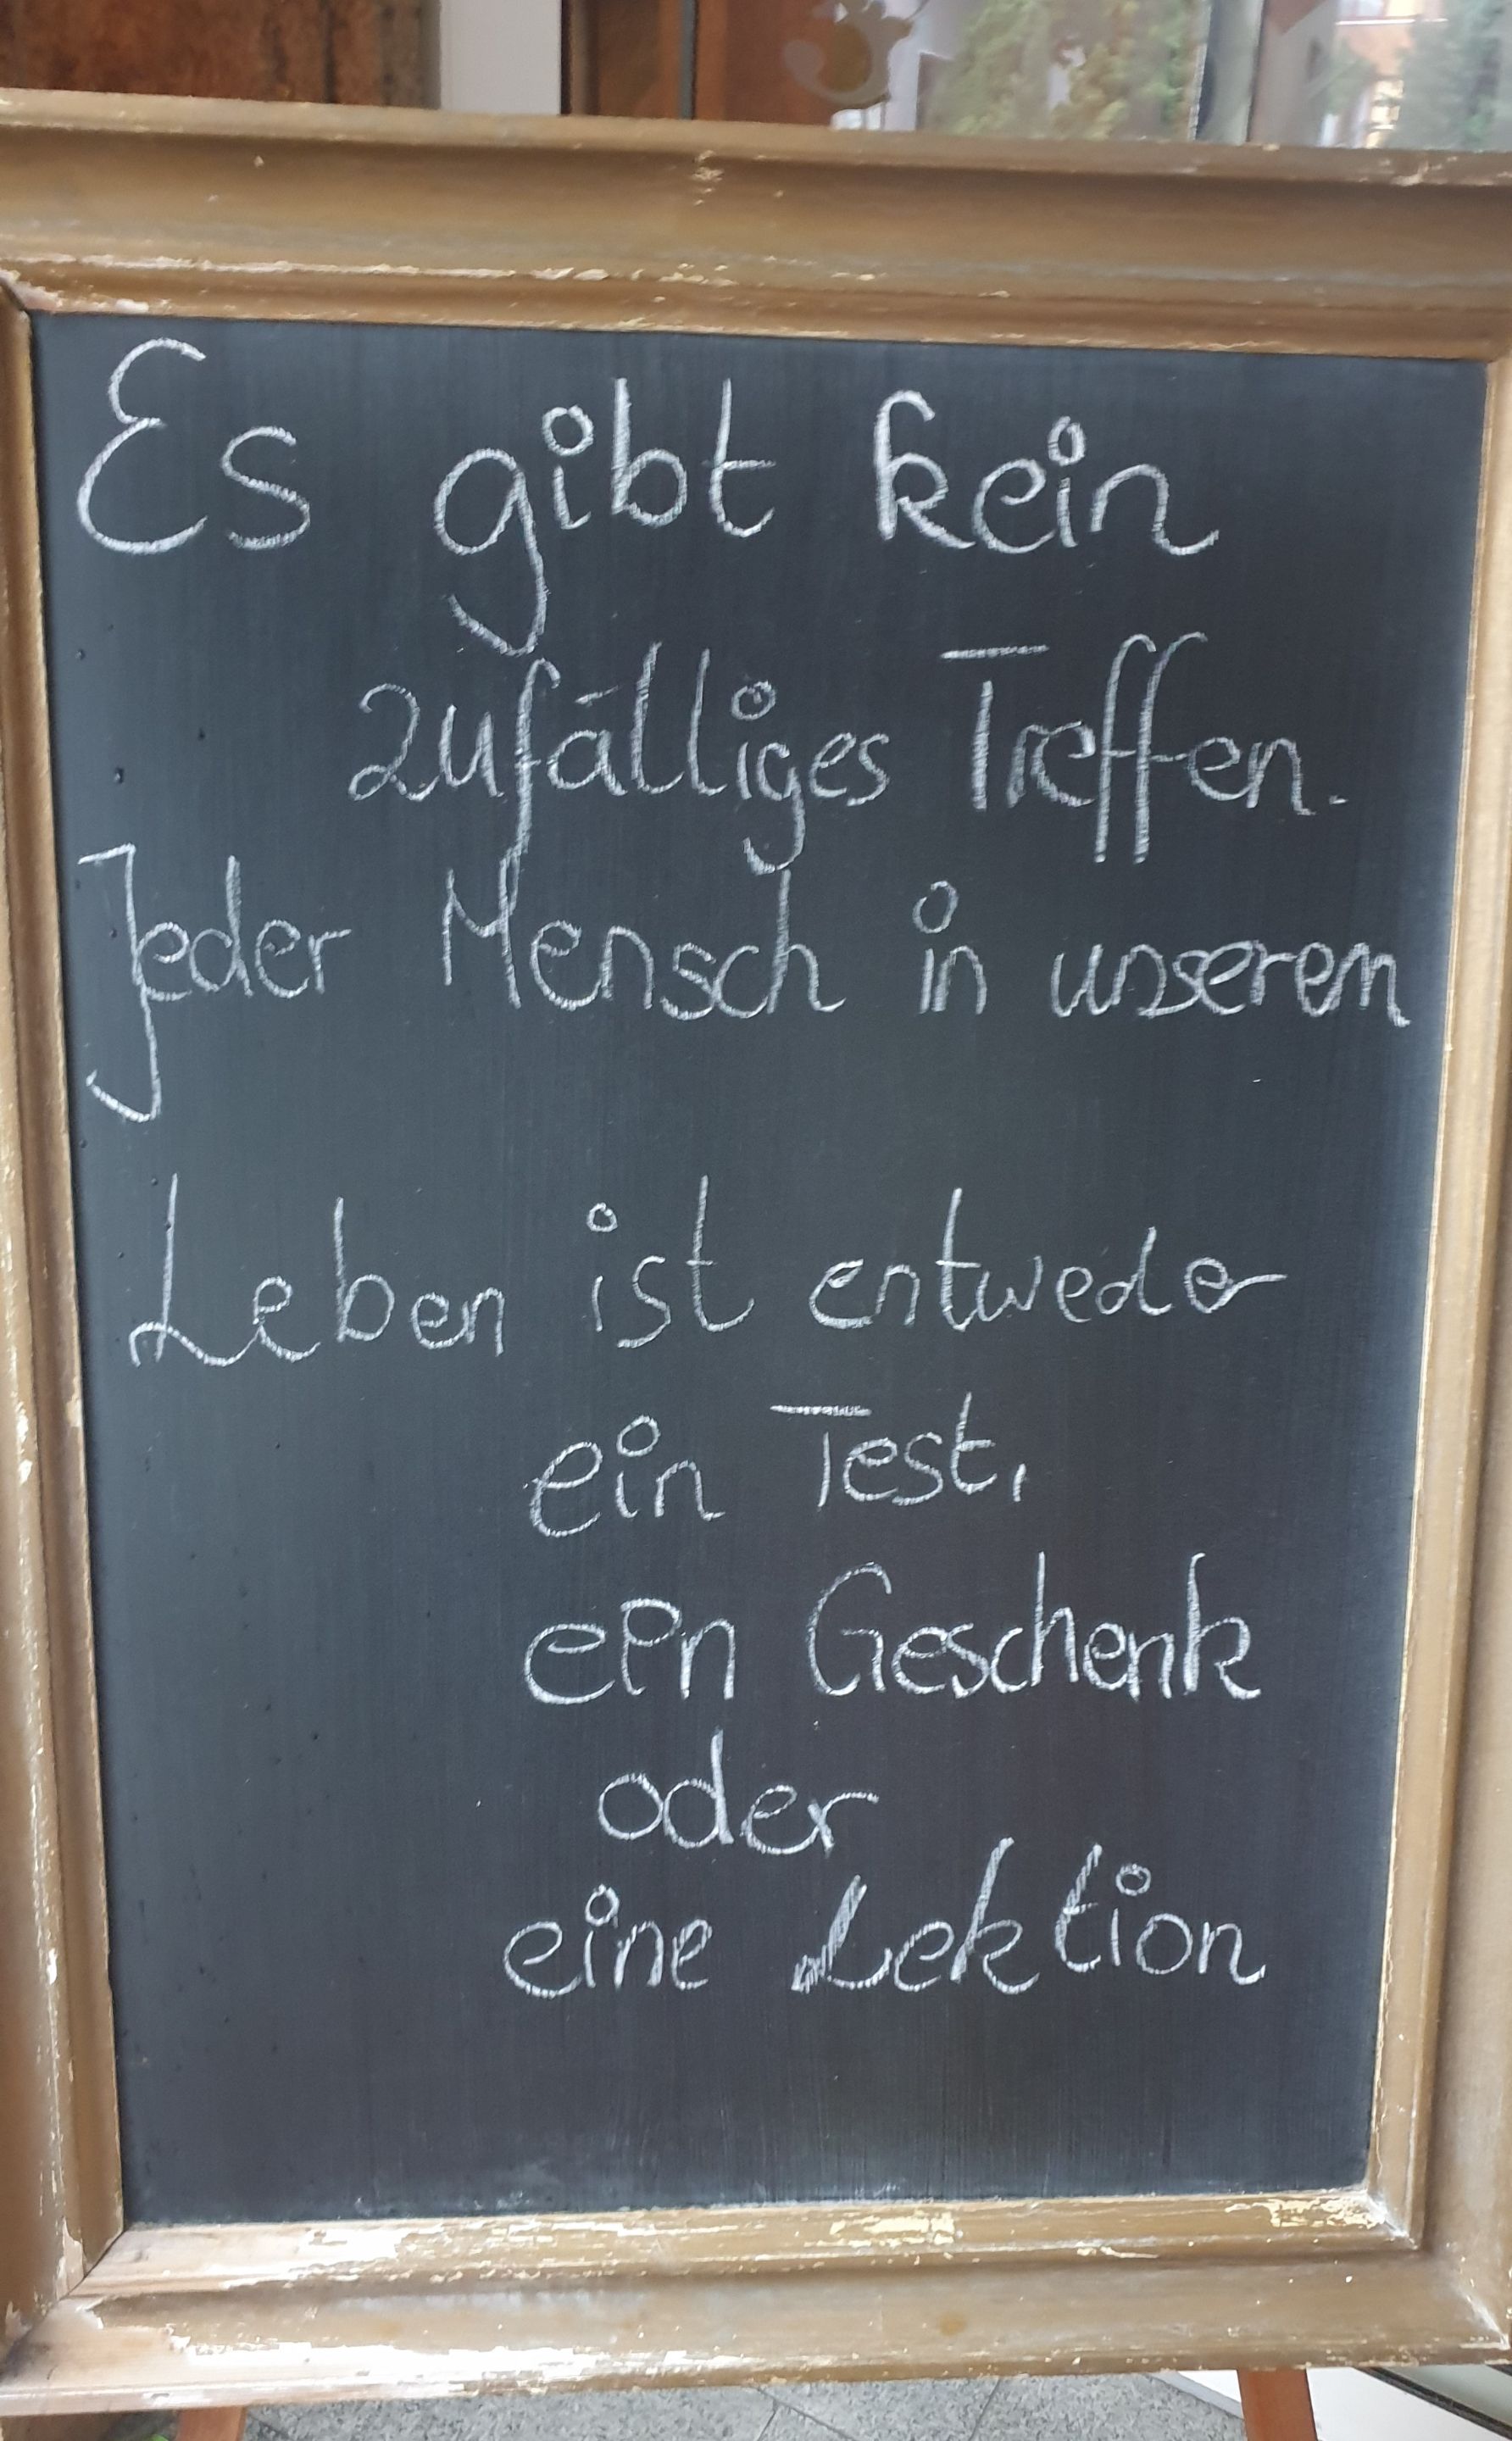 Es gibt kein
zufälliges Treffen.
Jeder Mensch in unserem
Leben ist entweder
ein Test,
ein Geschenk
oder
eine Lektion